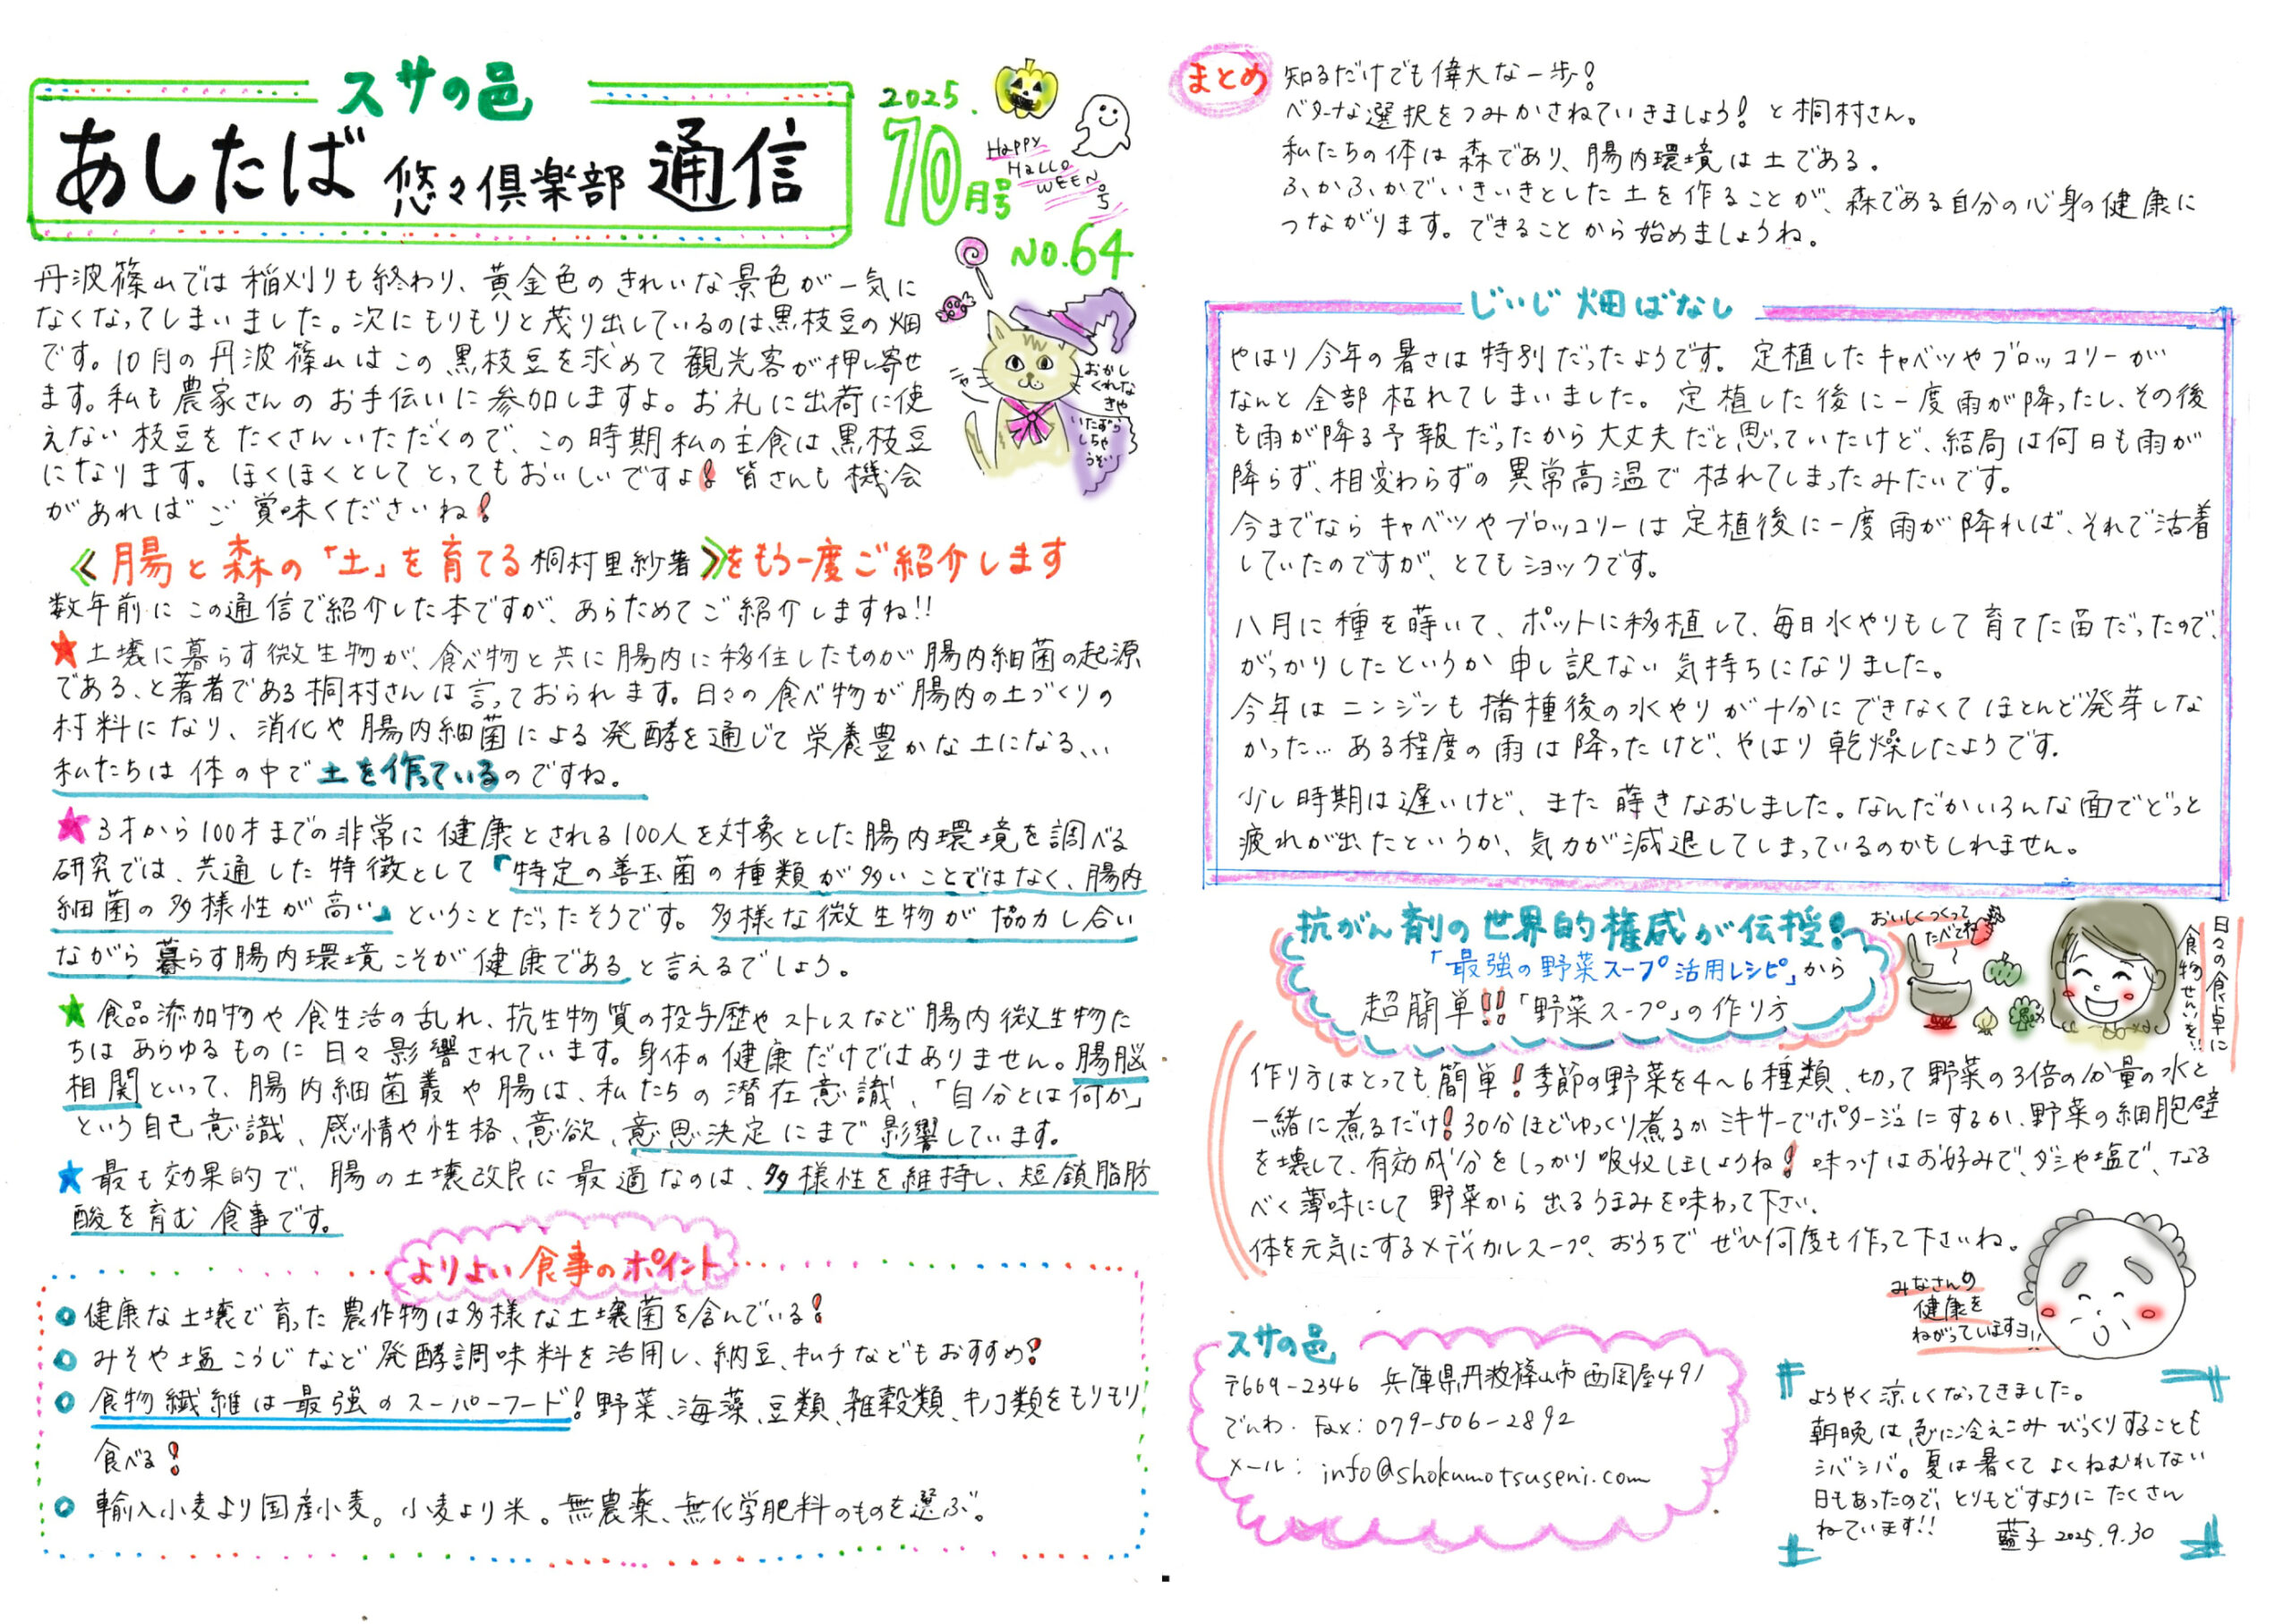 スサの邑
あしたば 悠々倶楽部 通信
2025.
10月号
HAPPY
HALLO
WEEN号
NO.64
丹波篠山では稲刈りも終わり、黄金色のきれいな景色が一気に
なくなってしまいました。次にもりもりと茂り出しているのは黒枝豆の畑
です。10月の丹波篠山はこの黒枝豆を求めて観光客が押し寄せ
ます。私も農家さんのお手伝いに参加しますよ。お礼に出荷に使
えない枝豆をたくさんいただくので、この時期私の主食は黒枝豆
になります。ほくほくとしてとってもおいしいですよ!皆さんも機会
があればご賞味くださいね!
ニャー
おかし
くれな
きゃ
いたずら
しちゃ
うぞ
《腸と森の「土」を育てる 桐村里紗著》をもう一度ご紹介します
数年前にこの通信で紹介した本ですが、あらためてご紹介しますね!!
★土壌に暮らす微生物が、食べ物と共に腸内に移住したものが腸内細菌の起源
である、と著者である桐村さんは言っておられます。日々の食べ物が腸内の土づくりの
材料になり、消化や腸内細菌による発酵を通じて栄養豊かな土になる、、、
私たちは体の中で土を作っているのですね。
★3才から100才までの非常に健康とされる100人を対象とした腸内環境を調べる
研究では、共通した特徴として「特定の善玉菌の種類が多いことではなく、腸内
細菌の多様性が高い」ということだったそうです。多様な微生物が協力し合い
ながら暮らす腸内環境こそが健康であると言えるでしょう。
★食品添加物や食生活の乱れ、抗生物質の投与歴やストレスなど腸内微生物た
ちはあらゆるものに日々影響されています。身体の健康だけではありません。腸脳
相関といって、腸内細菌叢や腸は、私たちの潜在意識、「自分とは何か」
という自己意識、感情や性格、意欲、意思決定にまで影響しています。
★最も効果的で、腸の土壌改良に最適なのは、多様性を維持し、短鎖脂肪
酸を育む食事です。
よりよい食事のポイント
健康な土壌で育った農作物は多様な土壌菌を含んでいる!
みそや塩こうじなど発酵調味料を活用し、納豆、キムチなどもおすすめ!
食物繊維は最強のスーパーフード!野菜、海藻、豆類、雑穀類、キノコ類をもりもり
食べる!
輸入小麦より国産小麦。小麦より米。無農薬、無化学肥料のものを選ぶ。
まとめ 知るだけでも偉大な一歩!
ベターな選択をつみかさねていきましょう!と桐村さん。
私たちの体は森であり、腸内環境は土である。
ふかふかでいきいきとした土を作ることが、森である自分の心身の健康に
つながります。できることから始めましょうね。
じいじ 畑ばなし
やはり今年の暑さは特別だったようです。定植したキャベツやブロッコリーが
なんと全部枯れてしまいました。定植した後に一度雨が降ったし、その後
も雨が降る予報だったから大丈夫だと思っていたけど、結局は何日も雨が
降らず、相変わらずの異常高温で枯れてしまったみたいです。
今までならキャベツやブロッコリーは定植後に一度雨が降れば、それで活着
していたのですが、とてもショックです。
八月に種を蒔いて、ポットに移植して、毎日水やりもして育てた苗だったので、
がっかりしたというか申し訳ない気持ちになりました。
今年はニンジンも播種後の水やりが十分にできなくてほとんど発芽しな
かった…ある程度の雨は降ったけど、やはり乾燥したようです。
少し時期は遅いけど、また蒔きなおしました。なんだかいろんな面でどっと
疲れが出たというか、気力が減退してしまっているのかもしれません。
抗がん剤の世界的権威が伝授!
「最強の野菜スープ活用レシピ」から
超簡単!!「野菜スープ」の作り方
おいしくつくって
たべてね
日々の食卓に
食物せんいを!!
作り方はとっても簡単!季節の野菜を4〜6種類、切って野菜の3倍の分量の水と
一緒に煮るだけ!30分ほどゆっくり煮るかミキサーでポタージュにするか、野菜の細胞壁
を壊して、有効成分をしっかり吸収しましょうね!味つけはお好みで、ダシや塩で、なる
べく薄味にして野菜から出るうまみを味わって下さい。
体を元気にするメディカルスープ、おうちでぜひ何度も作って下さいね。
みなさんの
健康を
ねがっていますヨ!!
スサの邑
〒669-2346 兵庫県丹波篠山市西岡屋491
でんわ・Fax:079-506-2892
メール:info@shokumotsuseni.com
ようやく涼しくなってきました。
朝晩は急に冷えこみびっくりすることも
シバシバ。夏は暑くてよくねむれない
日もあったので、とりもどすようにたくさん
ねています!!
藍子 2025.9.30